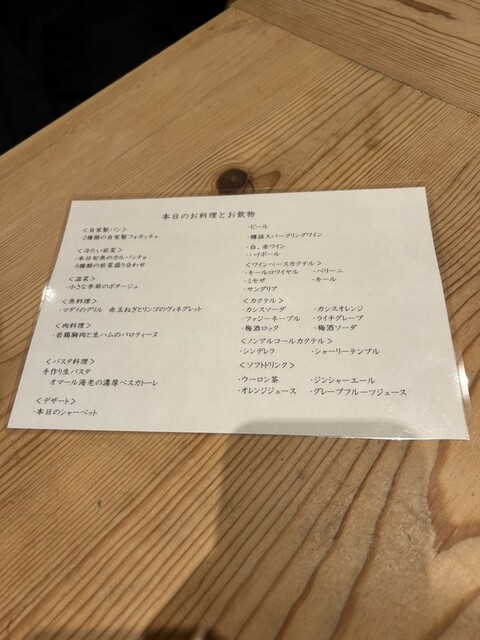 本日のお料理とお飲物
＜自家製・パン＞
・2種類の自家製フォカッチャ
＜冷たい前菜＞
・本日旬魚のカルパッチョ
・5種類の前菜盛り合わせ
＜温菜＞
・小さな季節のポタージュ
＜魚料理＞
・マダイのグリル 赤玉ねぎとリンゴのヴィネグレット
＜肉料理＞
・若鶏胸肉と生ハムのバロティーヌ
＜パスタ料理＞
手作り生パスタ
オマール海老の濃厚ペスカトーレ
＜デザート＞
・本日のシャーベット
・ビール
・樽詰スパークリングワイン
・白、赤ワイン
・ハイボール
＜ワインベースカクテル＞
・キールロワイヤル ・ベリーニ
・ミモザ ・キール
・サングリア
＜カクテル＞
・カシスソーダ ・カシスオレンジ
・ファジーネーブル ・ライチグレープ
・梅酒ロック ・梅酒ソーダ
＜ノンアルコールカクテル＞
・シンデレラ ・シャーリーテンプル
＜ソフトドリンク＞
・ウーロン茶 ・ジンジャーエール
・オレンジジュース ・グレープフルーツジュース